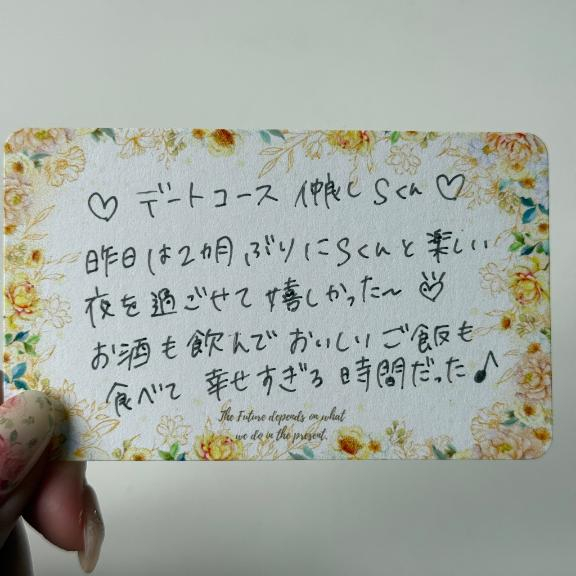 ♡ デートコース 仲良しSくん ♡
昨日は2カ月ぶりにSくんと楽しい
夜を過ごせて嬉しかった〜♡
お酒も飲んでおいしいご飯も
食べて 幸せすぎる時間だった♪
The Future depends on what
we do in the present.